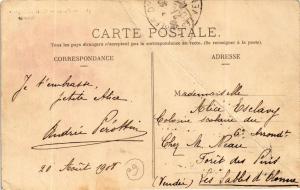 CARTE POSTALE.
Tous les pays étrangers n'acceptent pas la correspondance au recto. (Se renseigner à la poste).
CORRESPONDANCE
ADRESSE
Je t'embrasse,
petite Alice
Andrée
20 Août 1908
Mademoiselle
Alice Esclavy
Colonie scolaire du
Chez M. Neau
Forêt des Pins
(Vendée) Les Sables d'Olonne